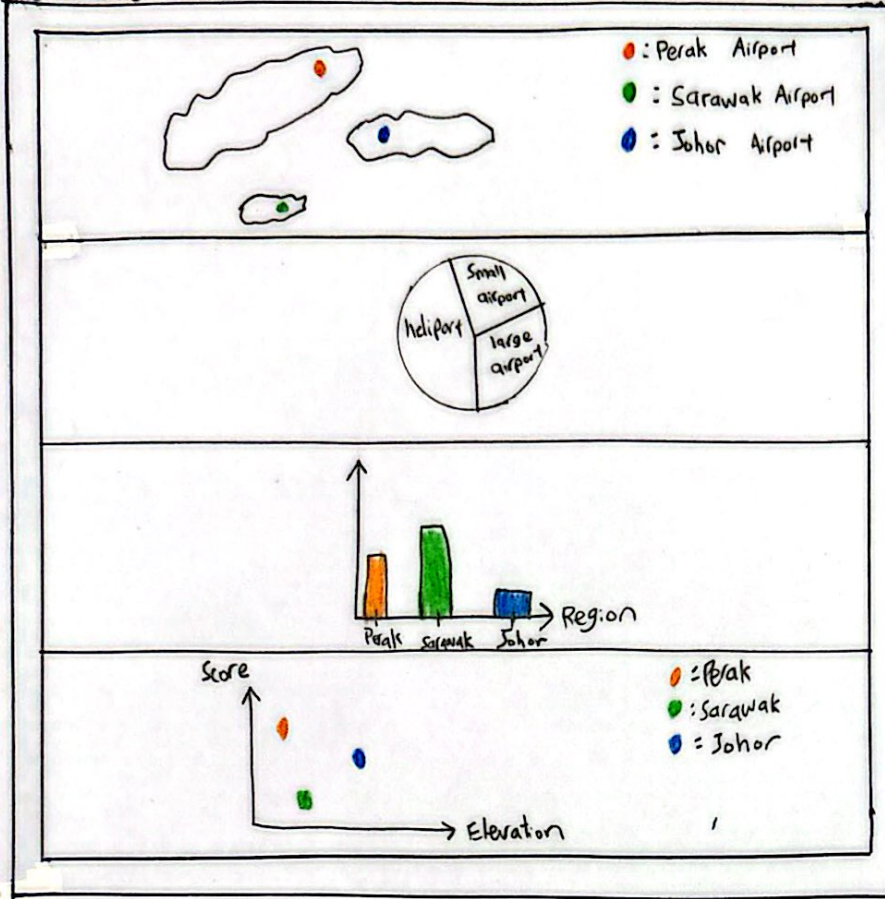 : Perak Airport
: Sarawak Airport
: Johor Airport
Small
airport
heliport
large
airport
Region
Perak
Sarawak
Johor
Score
: Perak
: Sarawak
: Johor
Elevation